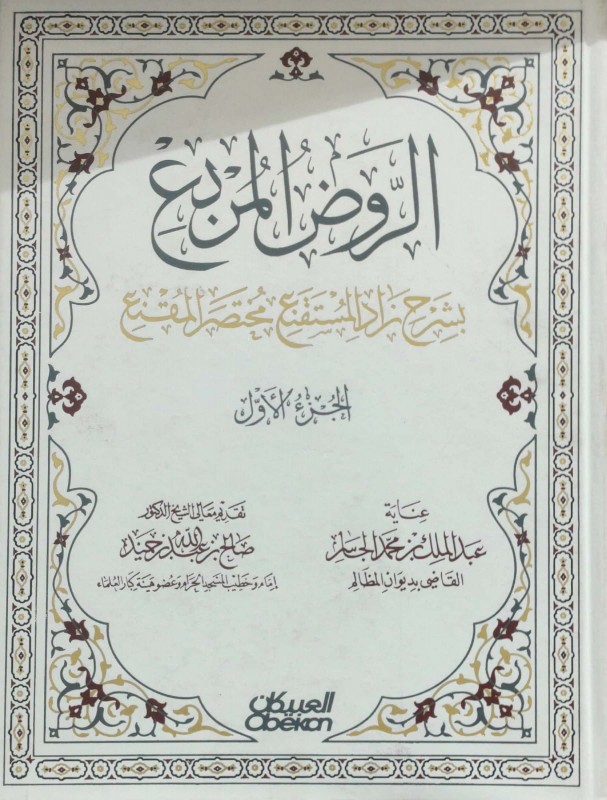 الرَّوضُ المُرْبِعُ
بِشَرْحِ زَادِ المُسْتَقْنِعِ مُخْتَصَرِ المُقْنِعِ
الجُزْءُ الأَوَّل
عِنَايَة
عبد الملك بن محمد الجاسر
القاضي بديوان المظالم
تقديم معالي الشيخ الدكتور
صالح بن عبد الله بن حميد
إمام وخطيب المسجد الحرام وعضو هيئة كبار العلماء
العبيكان
Obekon